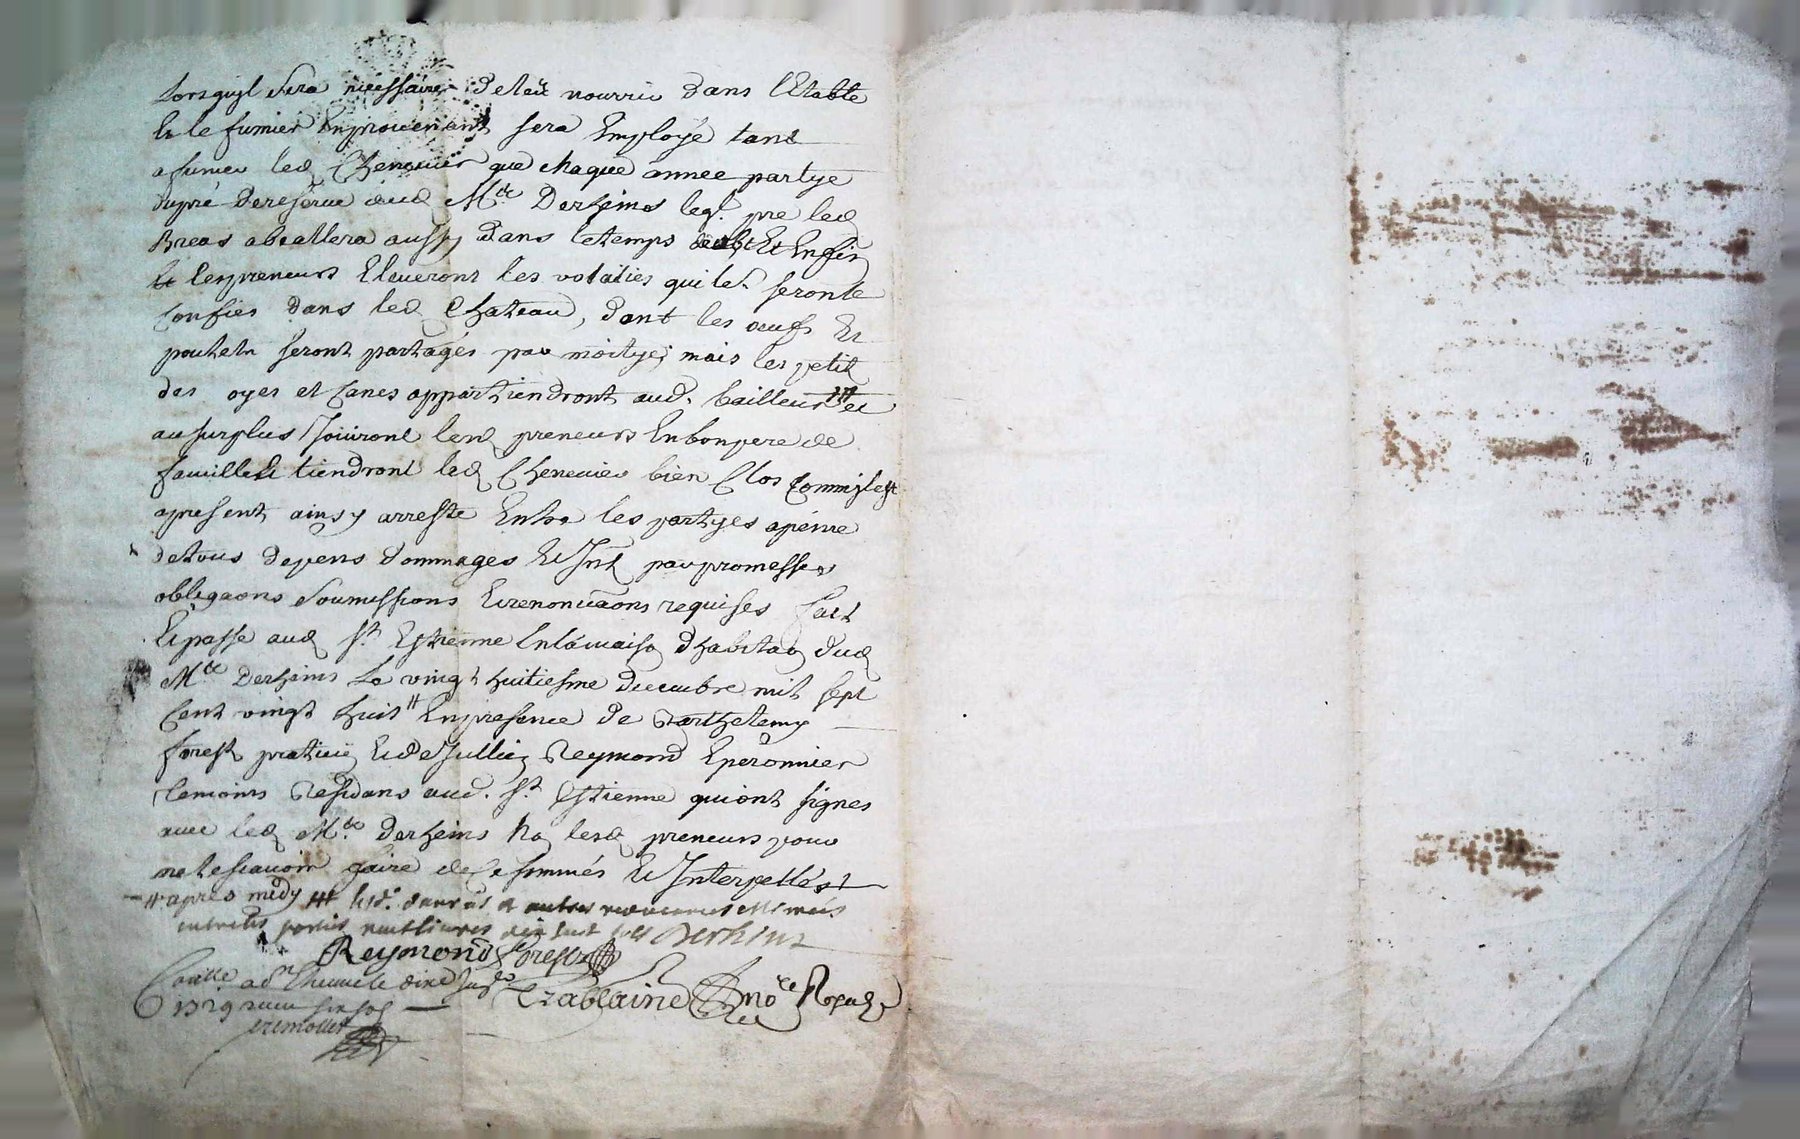 Lorsquyl sera nécessaire detail nourrie dans l'Etable
Et le fumier Enprovenant sera Employé tant
a fumer led Chenevier que chaque année partye
dupré dereserve dud Mre Derheins leql. pré led
Breas aballera aussy dans letemps Et Enfin
lespreneurs Eleveront les volailes qui le. seronte
Confies dans led Chateau, dont les oeufs Et
pouhets seront partagés par moitye; mais les petit
des oyes et Canes appartiendront aud. bailleur et
au surplus Joüiront lesd preneurs Enbonpere de
famille Et tiendront led Chenevier bien Clos Commylest
apresent ainsy arresté Entre les partyes apeine
detous depens dommages Et Int par promesses
obligaons Soumissions Et renonciaons requises fait
Et passé aud St Estienne En la maison d'habitaon dud
Mre Derheins Le vingt huitiesme decembre mil sept
Cent vingt huit # Enpresence de Barthelemy
forest praticien Et de Jullien Reymond Eperonnier
temoins Residans aud. St. Estienne quiont signes
avec led Mre derheins No lesd preneurs pour
ne le scavoir faire de Ce sommés Et Interpellés
# apres midy ### led.
parties Derheins
Reymond forest
Conllé a St Etienne le dixe
1729
Tzablaine Nore Royal